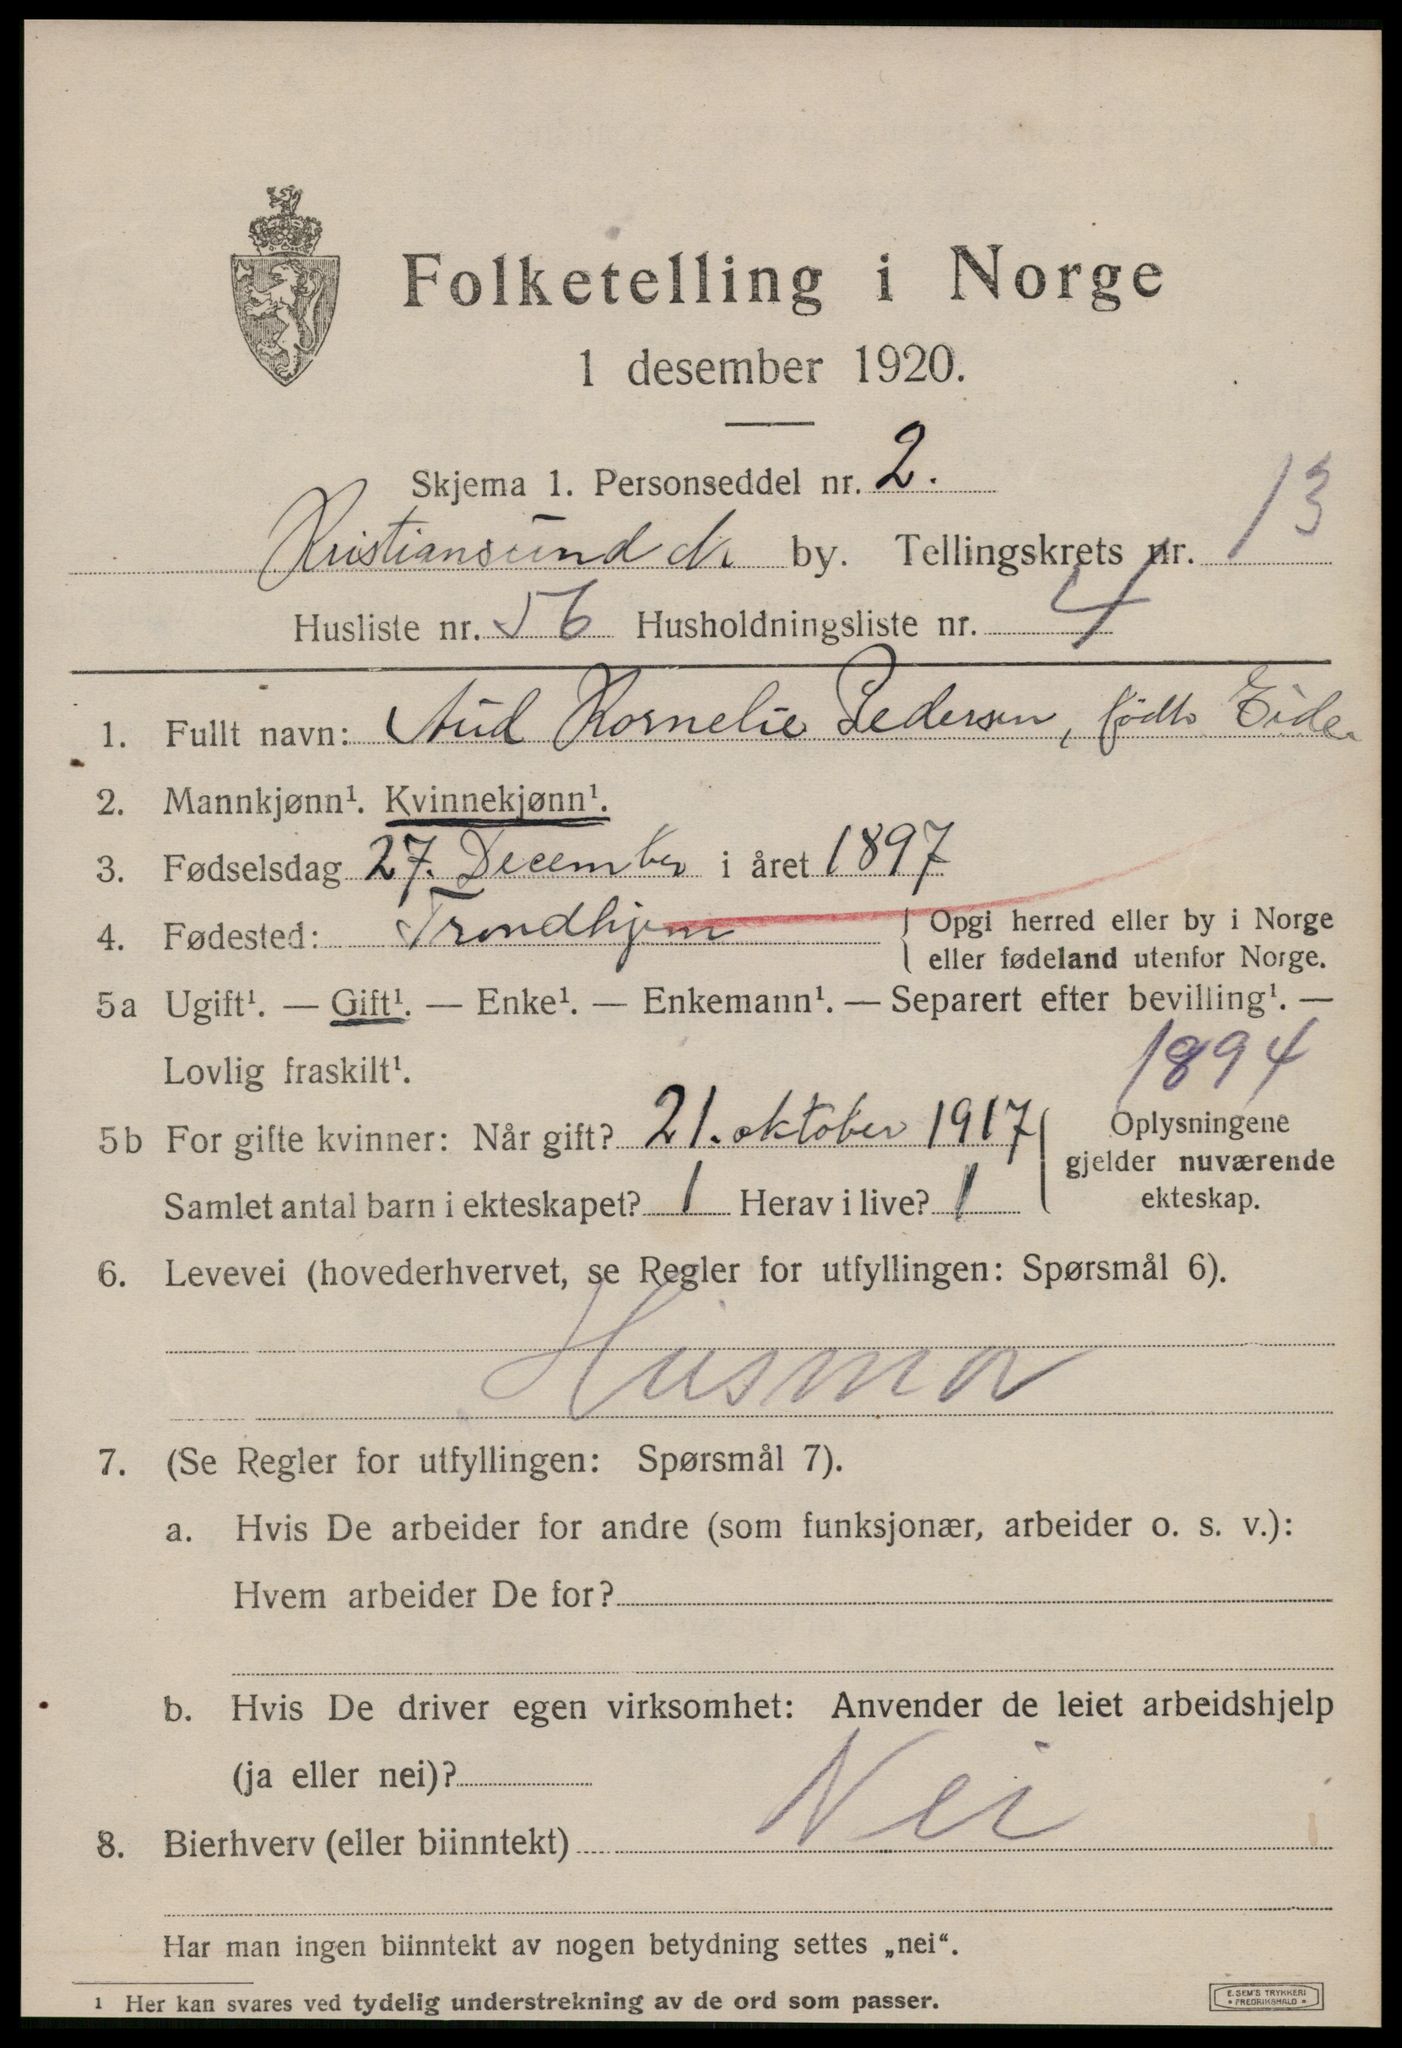 Folketelling i Norge
1 desember 1920.
Skjema 1. Personseddel nr. 2.
Kristiansund N. by. Tellingskrets nr. 13
Husliste nr. 56 Husholdningsliste nr. 4
1. Fullt navn: Aud Kornelie Pedersen, födt Eide
2. Mannkjønn¹. Kvinnekjønn¹.
3. Fødselsdag 27. December i året 1897
4. Fødested: Trondhjem { Opgi herred eller by i Norge
eller fødeland utenfor Norge.
5a Ugift¹. — Gift¹. — Enke¹. — Enkemann¹. — Separert efter bevilling¹. —
Lovlig fraskilt¹. 1894
5b For gifte kvinner: Når gift? 21. oktober 1917 { Oplysningene
gjelder nuværende
Samlet antal barn i ekteskapet? 1 Herav i live? 1 ekteskap.
6. Levevei (hovederhvervet, se Regler for utfyllingen: Spørsmål 6).
Husmor
7. (Se Regler for utfyllingen: Spørsmål 7).
a. Hvis De arbeider for andre (som funksjonær, arbeider o. s. v.):
Hvem arbeider De for?
b. Hvis De driver egen virksomhet: Anvender de leiet arbeidshjelp
(ja eller nei)?
8. Bierhverv (eller biinntekt) Nei
Har man ingen biinntekt av nogen betydning settes „nei“.
¹ Her kan svares ved tydelig understrekning av de ord som passer.
E. SEM'S TRYKKERI
• FREDRIKSHALD •